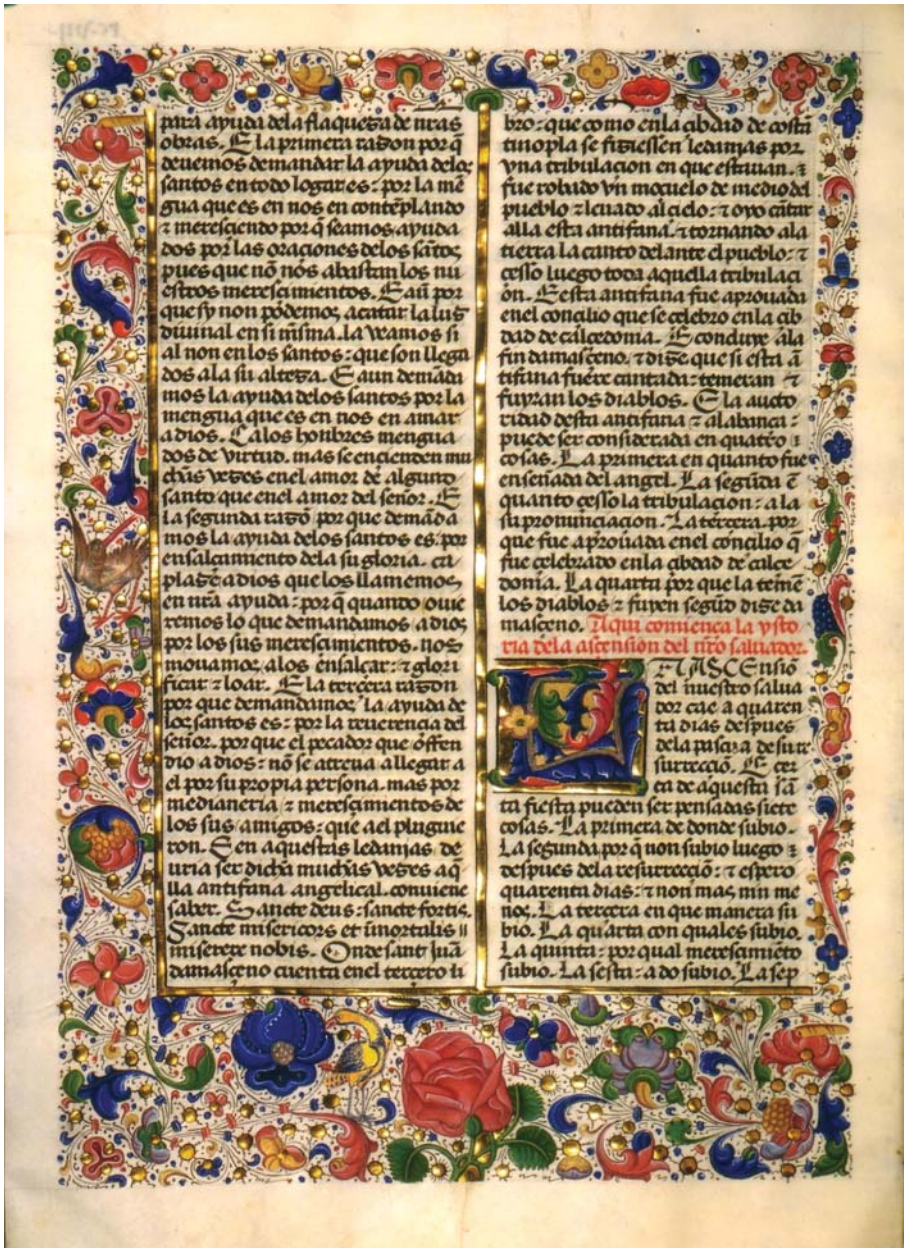 para ayuda dela flaqueza de nr̃as
obras. E la primera razon por q̃
deuemos demandar la ayuda delos
santos en todo logar es: por la mẽ
gua que es en nos en contẽplando
⁊ meresciendo por q̃ seamos ayuda
dos por las oraciones delos sãtos
pues que nõ nos abastan los nu
estros merescimientos. E aũ por
que sy non podemos acatar la luz
diuinal en si misma. la veamos si
al non en los santos: que son llega
dos ala su alteza. E aun demãda
mos la ayuda delos santos por la
mengua que es en nos en amar
a dios. Ca los honbres mengua
dos de virtud. mas se encienden mu
chas vezes enel amor de alguno
santo que enel amor del señor. E
la segunda razõ por que demãda
mos la ayuda delos santos es: por
ensalçamiento dela su gloria. ca
plaze a dios que los llamemos
en nr̃a ayuda: por q̃ quando ouie
remos lo que demandamos a dios
por los sus merescimientos. nos
mouamos alos ensalçar: ⁊ glori
ficar ⁊ loar. E la tercera razon
por que demandamos la ayuda de
los santos es: por la reuerencia del
señor. por que el pecador que offen
dio a dios: nõ se atreua allegar a
el por su propia persona. mas por
medianeria ⁊ merescimientos de
los sus amigos: que a el pluguie
ron. E en aquestas ledanias de
uria ser dicha muchas vezes aq̃
lla antifana angelical. conuiene
saber. Sancte deus: sancte fortis.
Sancte misericors et inmortalis
miserere nobis. Onde sant juã
damasceno cuenta enel tercero li
bro: que como enla çibdad de costã
tinopla se fiziessen ledanias por
vna tribulacion en que estauan. ⁊
fue robado vn moçuelo de medio del
pueblo ⁊ leuado al cielo: ⁊ oyo cãtar
alla esta antifana. ⁊ tornando ala
tierra la canto delante el pueblo: ⁊
cesso luego toda aquella tribulaci
on. E esta antifana fue aprouada
enel concilio que se celebro en la çib
dad de calcedonia. E concluye ala
fin damasceno. ⁊ dize que si esta ã
tifana fuere cantada: temeran ⁊
fuyran los diablos. E la aucto
ridad desta antifana ⁊ alabança:
puede ser considerada en quatro
cosas. La primera en quanto fue
enseñada del angel. La segũda ẽ
quanto cesso la tribulacion: a la
su pronunciacion. La tercera. por
que fue aprouada enel concilio q̃
fue celebrado enla çibdad de calce
donia. La quarta por que la temẽ
los diablos ⁊ fuyen segũd dize da
masceno. Aqui comiença la ysto
ria dela ascension del nr̃o saluador.
LA ASCEnsiõ
del nuestro salua
dor cae a quaren
ta dias despues
dela pascua de su re
surrecciõ. E cer
ca de aquesta sã
ta fiesta pueden ser pensadas siete
cosas. La primera de donde subio.
La segunda por q̃ non subio luego
despues dela resurrecciõ: ⁊ espero
quarenta dias: ⁊ non mas nin me
nos. La tercera en que manera su
bio. La quarta con quales subio.
La quinta: por qual merescimiẽto
subio. La sesta: a do subio. La sep